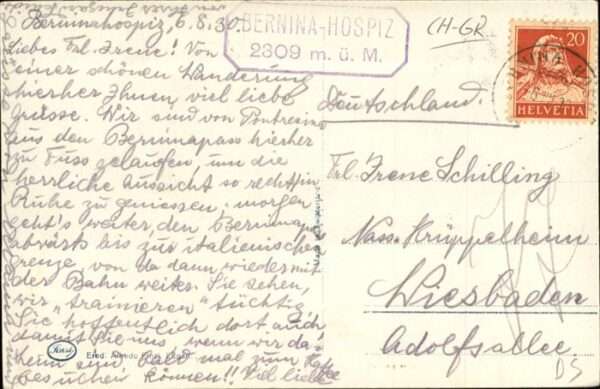 Berninahospiz, 6.8.30
Liebes Frl. Irene! Von
einer schönen Wanderung
hierher Ihnen viel liebe
Grüsse. Wir sind von Pontresina
aus den Berninapass hierher
zu Fuss gelaufen, um die
herrliche Aussicht so recht in
Ruhe zu geniessen. morgen
geht's weiter, den Berninapass
abwärts bis zur italienischen
Grenze von da dann wieder mit
der Bahn weiter. Sie sehen,
wir "trainieren" tüchtig
Sie hoffentlich dort auch
damit Sie uns, wenn wir da-
heim sind bald mal zum Kaffee
besuchen können!! Viel liebe
BERNINA-HOSPIZ
2309 m. ü. M.
CH-GR
20
HELVETIA
Deutschland.
Frl. Irene Schilling
Nass. Krüppelheim
Wiesbaden
Adolfsallee
DS